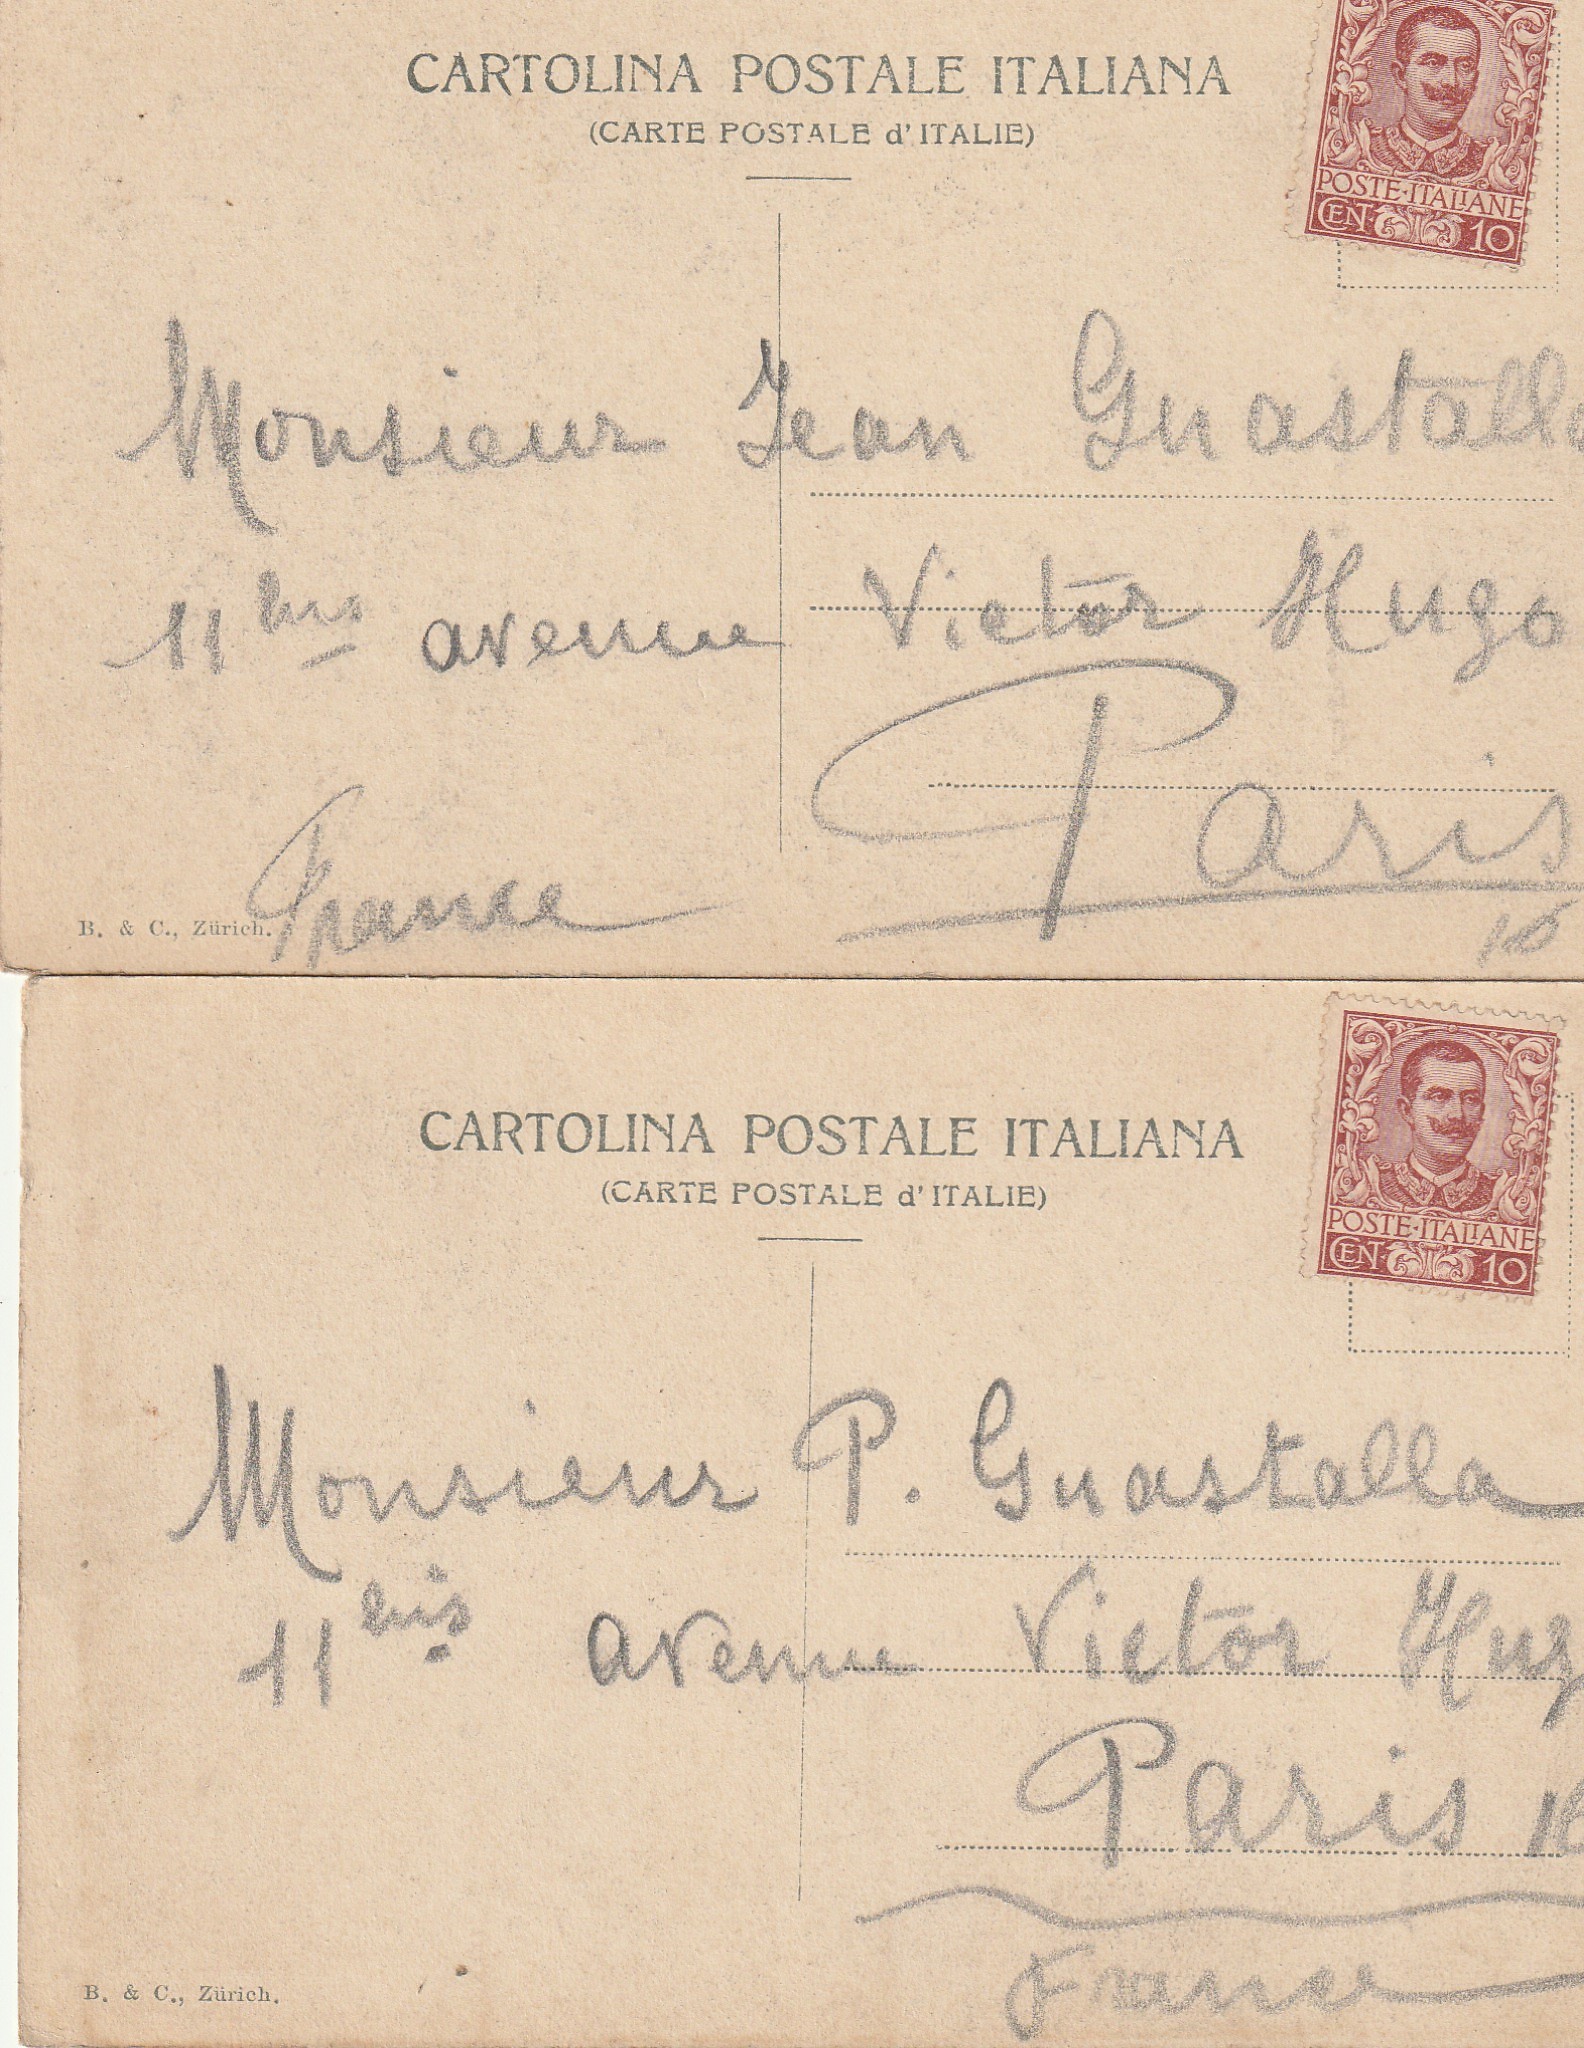 CARTOLINA POSTALE ITALIANA
(CARTE POSTALE d'ITALIE)
POSTE·ITALIANE
CEN 10
Monsieur Jean Guastalla
11 bis avenue Victor Hugo
Paris
16
France
B. & C., Zürich.
CARTOLINA POSTALE ITALIANA
(CARTE POSTALE d'ITALIE)
POSTE·ITALIANE
CEN 10
Monsieur P. Guastalla
11 bis avenue Victor Hug
Paris 16
France
B. & C., Zürich.